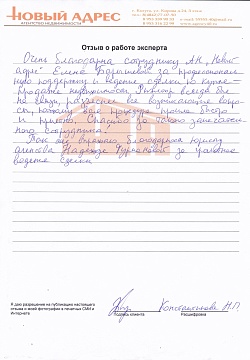 НОВЫЙ АДРЕС
АГЕНТСТВО НЕДВИЖИМОСТИ
Отзыв о работе эксперта
Очень благодарна сотруднику АН "Новый
адрес" Елене за профессиональ
ную поддержку и ведение сделки по купле-
продаже недвижимости. Риэлтор всегда был
на связи, разъяснял все возникающие вопро-
сы, поэтому вся процедура прошла быстро
и приятно. Спасибо за такого замечатель-
ного сотрудника!
Так же выражаю благодарность юристу
агентства Надежде за грамотное
ведение сделки.
Я даю разрешение на публикацию настоящего
отзыва и моей фотографии в печатных СМИ и
Интернете
Подпись клиента
Расшифровка